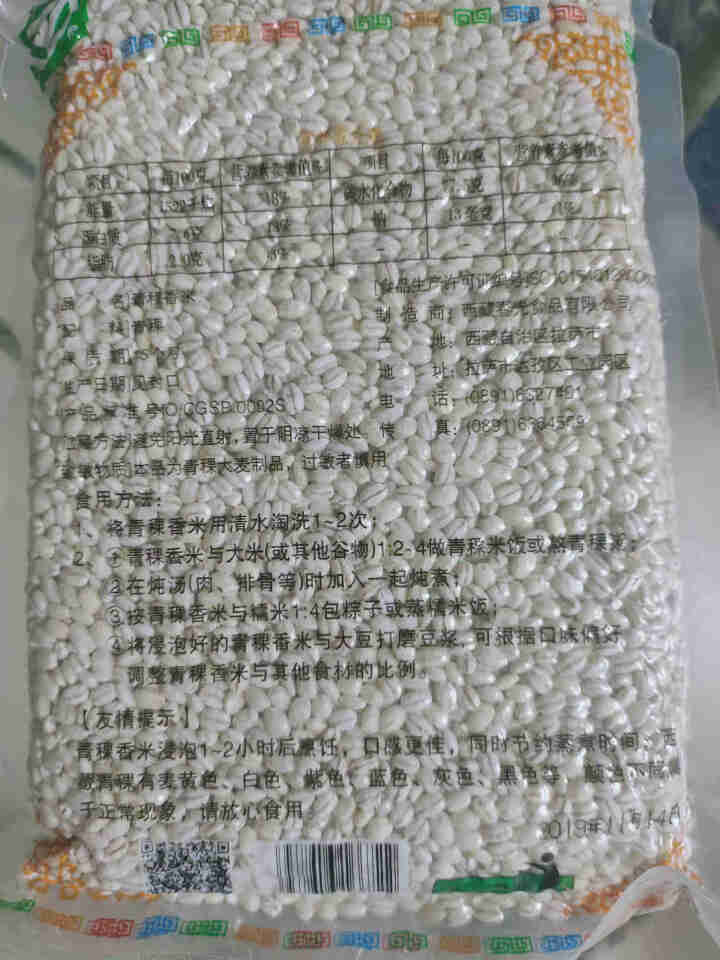 项目 每100克 营养素参考值% 项目 每100克 营养素参考值%
能量 18% 碳水化合物
蛋白质 钠 13毫克
脂肪 2.0克
品 名]青稞香米
[食品生产许可证编号]SC
料]青稞
制 造 商: 西藏 食品有限公司
产 地: 西藏自治区拉萨市
生产日期]见封口
地 址: 拉萨市达孜区工业园区
产品标准号]Q/CGSP 0002S
电 话: (0891)
方法]避免阳光直射,置于阴凉干燥处
传 真: (0891)
致敏物质]本品为青稞大麦制品, 过敏者慎用
食用方法:
1、将青稞香米用清水淘洗1~2次;
2、①青稞香米与大米(或其他谷物)1:2-4做青稞米饭或熬青稞粥;
②在炖汤(肉、排骨等)时加入一起炖煮;
③按青稞香米与糯米1:4包粽子或蒸糯米饭;
④将浸泡好的青稞香米与大豆打磨豆浆,可根据口味偏好
调整青稞香米与其他食材的比例。
【友情提示】
青稞香米浸泡1~2小时后烹饪,口感更佳,同时节约蒸煮时间;西
藏青稞有麦黄色、白色、紫色、蓝色、灰色、黑色等,颜色不同属
于正常现象,请放心食用。
2019年11月14日